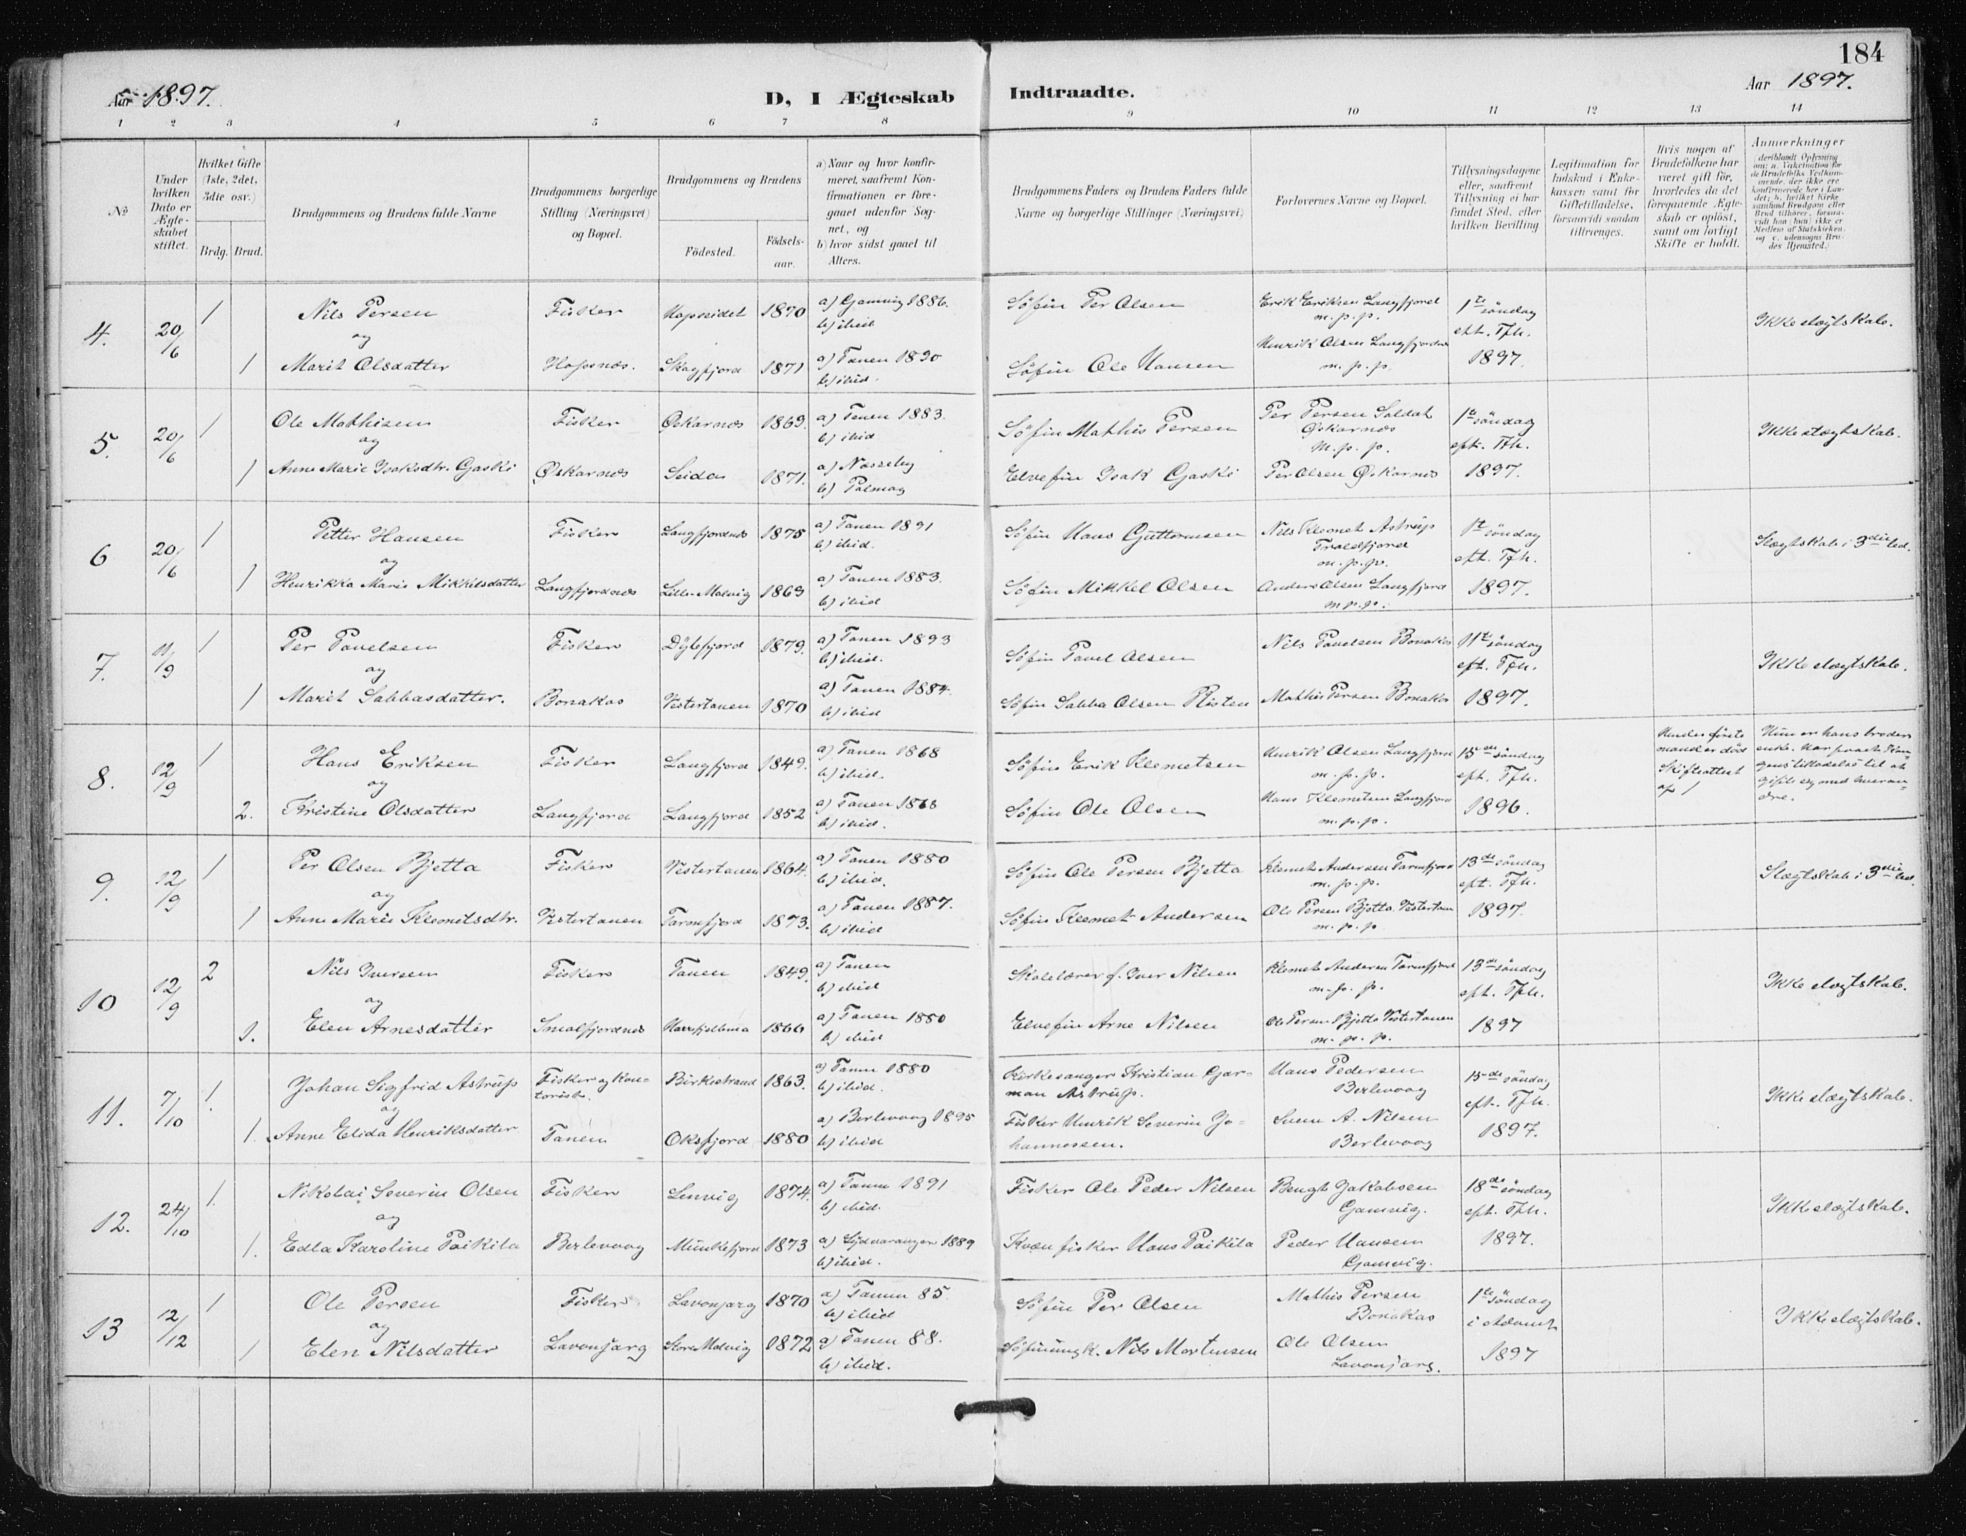 184
Aar 1897.
D, I Ægteskab Indtraadte.
Aar 1897.
1 2 3 4 5 6 7 8 9 10 11 12 13 14
№
Under hvilken Dato er Ægteskabet stiftet.
Hvilket Gifte (1ste, 2det, 3dte osv.)
Brdg. Brud.
Brudgommens og Brudens fulde Navne
Brudgommens borgerlige Stilling (Næringsvei) og Bopæl.
Brudgommens og Brudens
Fødested.
Fødselsaar.
a) Naar og hvor konfirmeret, saafremt Konfirmationen er foregaaet udenfor Sognet, og
b) hvor sidst gaaet til Alters.
Brudgommens Faders og Brudens Faders fulde Navne og borgerlige Stillinger (Næringsvei)
Forlovernes Navne og Bopæl.
Tillysningsdagene eller, saafremt Tillysning ei har fundet Sted, efter hvilken Bevilling
Legitimation for Indskud i Enkekassen samt for Giftetilladelse, forsaavidt saadan tiltrænges.
Hvis nogen af Brudefolkene har været gift før, hvorledes da det foregaaende Ægteskab er opløst, samt om lovligt Skifte er holdt.
Anmerkninger
(deriblandt Oplysning om: a. Vakcination for de Brudefolks Vedkommende, der ikke ere konfirmerede her i Landet; b. hvilket Kirkesamfund Brudgom eller Brud tilhører, forsaavidt han (hun) ikke er Medlem af Statskirken, og c. udensogns Brudes Hjemsted.)
4. 20/6 1 Nils Persen Fisker Hopseidet 1870 a) Gamvig 1886. b) ibid Søfin Per Olsen Erik Eriksen Langfjord m.p.p. 1te søndag eft. Tfh. 1897. Ikke slægtskab.
og
1 Marit Olsdatter Hopsnæs. Skogfjord 1871 a) Tanen 1890 b) ibid. Søfin Ole Hansen Henrik Olsen Langfjordnes m.p.p.
5. 20/6 1 Ole Mathisen Fisker Øskarnæs 1869. a) Tanen 1883. b) ibid Søfin Mathis Persen Per Persen Saldat Øskarnæs m.p.p. 1te søndag eft. Tfh. 1897. Ikke slægtskab.
og
1 Anne Marie Isaksdtr. Gaski Øskarnæs Seida 1871. a) Næsseby b) Polmag Elvefin Isak Gaski Per Olsen Øskarnæs
6 20/6 1 Petter Hansen Fisker Langfjordnes 1875 a) Tanen 1891 b) ibid. Søfin Hans Guttormsen Nils Klemet Astrup Troldfjord m.p.p. 1te søndag eft. Tfh. 1897. Slægtskab i 3die led.
og
1 Henrikka Marie Mikkelsdatter Langfjordnæs Lille-Molvig 1869 a) Tanen 1883. b) ibid Søfin Mikkel Olsen Anders Olsen Langfjord m.p.p.
7. 11/9 1 Per Pavelsen Fisker Dybfjord 1879. a) Tanen 1893 b) ibid. Søfin Pavel Olsen Nils Pavelsen Bonakas 11te søndag eft. Tfh. 1897. Ikke slægtskab.
og
1 Marit Sabbasdatter. Bonakas Vestertanen 1870 a) Tanen 1884. b) ibid Søfin Sabba Olsen Risten Mathis Persen Bonakas
8. 12/9 1 Hans Eriksen Fisker Langfjord 1849. a) Tanen 1868 b) ibid Søfin Erik Klemetsen Henrik Olsen Langfjord m.p.p. 15de søndag eft. Tfh. 1896. Hendes første mand er død Skifteattest af / Hun er hans broders enke. Har faaet Kongens tilladelse til at gifte sig med hverandre.
og
2. Kristine Olsdatter Langfjord Langfjord 1852 a) Tanen 1868 b) ibid. Søfin Ole Olsen Hans Klemetsen Langfjord m.p.p.
9. 12/9 1 Per Olsen Bjetta Fisker Vestertanen 1864. a) Tanen 1880 b) ibid. Søfin Ole Persen Bjetta Klemet Andersen Tarmfjord m.p.p. 13de søndag eft. Tfh. 1897. Slægtskab i 3die led.
og
1 Anne Marie Klemetsdtr. Vestertanen Tarmfjord 1873. a) Tanen 1887. b) ibid Søfin Klemet Andersen Ole Persen Bjetta Vestertanen m.p.p.
10 12/9 2 Nils Iversen Fisker Tanen 1849. a) Tanen b) ibid Skolelærer f. Iver Nilsen Klemet Andersen Tarmfjord m.p.p. 13de søndag eft. Tfh. 1897 Ikke slægtskab.
og
1. Elen Arnesdatter Smalfjordnæs 1866 a) Tanen 1880 b) ibid Elvefin Arne Nilsen Ole Persen Bjetta Vestertanen m.p.p.
11. 7/10 1. Johan Sigfrid Astrup Fisker og kontorist. Birkestrand 1863. a) Tanen 1880 b) ibid. Kirkesanger Kristian Garman Astrup. Hans Pedersen Berlevaag 15de søndag eft. Tfh. 1897. Ikke slægtskab.
og
1. Anne Elida Henriksdatter Tanen Oksfjord 1880 a) Berlevaag 1895 b) ibid Fisker Henrik Severin Johannessen. Svenn A. Nilsen Berlevaag
12. 24/10 1. Nikolai Severin Olsen Fisker Lenvig 1874. a) Tanen 1891 b) ibid. Fisker Ole Peder Nilsen Bengt Jakobsen Gamvig. 18de søndag eft. Tfh. 1897. Ikke slægtskab.
og
1. Edla Karoline Paikila Berlevaag Munkefjord 1873 a) Sydvaranger 1889 b) ibid. Kvæn fisker Hans Paikila Peder Hansen Gamvig.
13 12/12 1 Ole Persen Fisker Lavonjarg 1870 a) Tanen 85. b) ibid Søfin Per Olsen Mathis Persen Bonakas 1te søndag i advent 1897 Ikke slægtskab.
og
1 Elen Nilsdatter Lavonjarg Store Molvig 1872 a) Tanen 88. b) ibid. Søfinungk. Nils Mortensen Ole Olsen Lavonjarg.